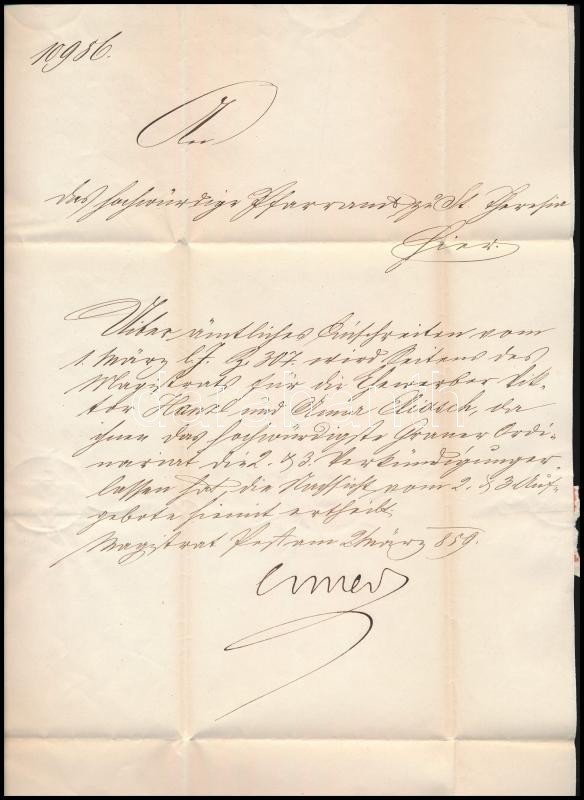 10986.
An
das hochwürdige Pfarramt zu St. Theresia
hier.
Uiber ämtliches Einschreiten vom
1. März lf. Z. 307 wird Seitens des
Magistrats für die Ehewerber Vik-
tor Hanzl und Anna Klosch, da
ihnen das hochwürdigste Graner Ordi-
nariat die 2. & 3. Verkündigung er-
lassen hat, die Nachsicht vom 2. & 3. Auf-
gebote hiemit ertheilt.
Magistrat Pest am 2 März 859.
darabanth